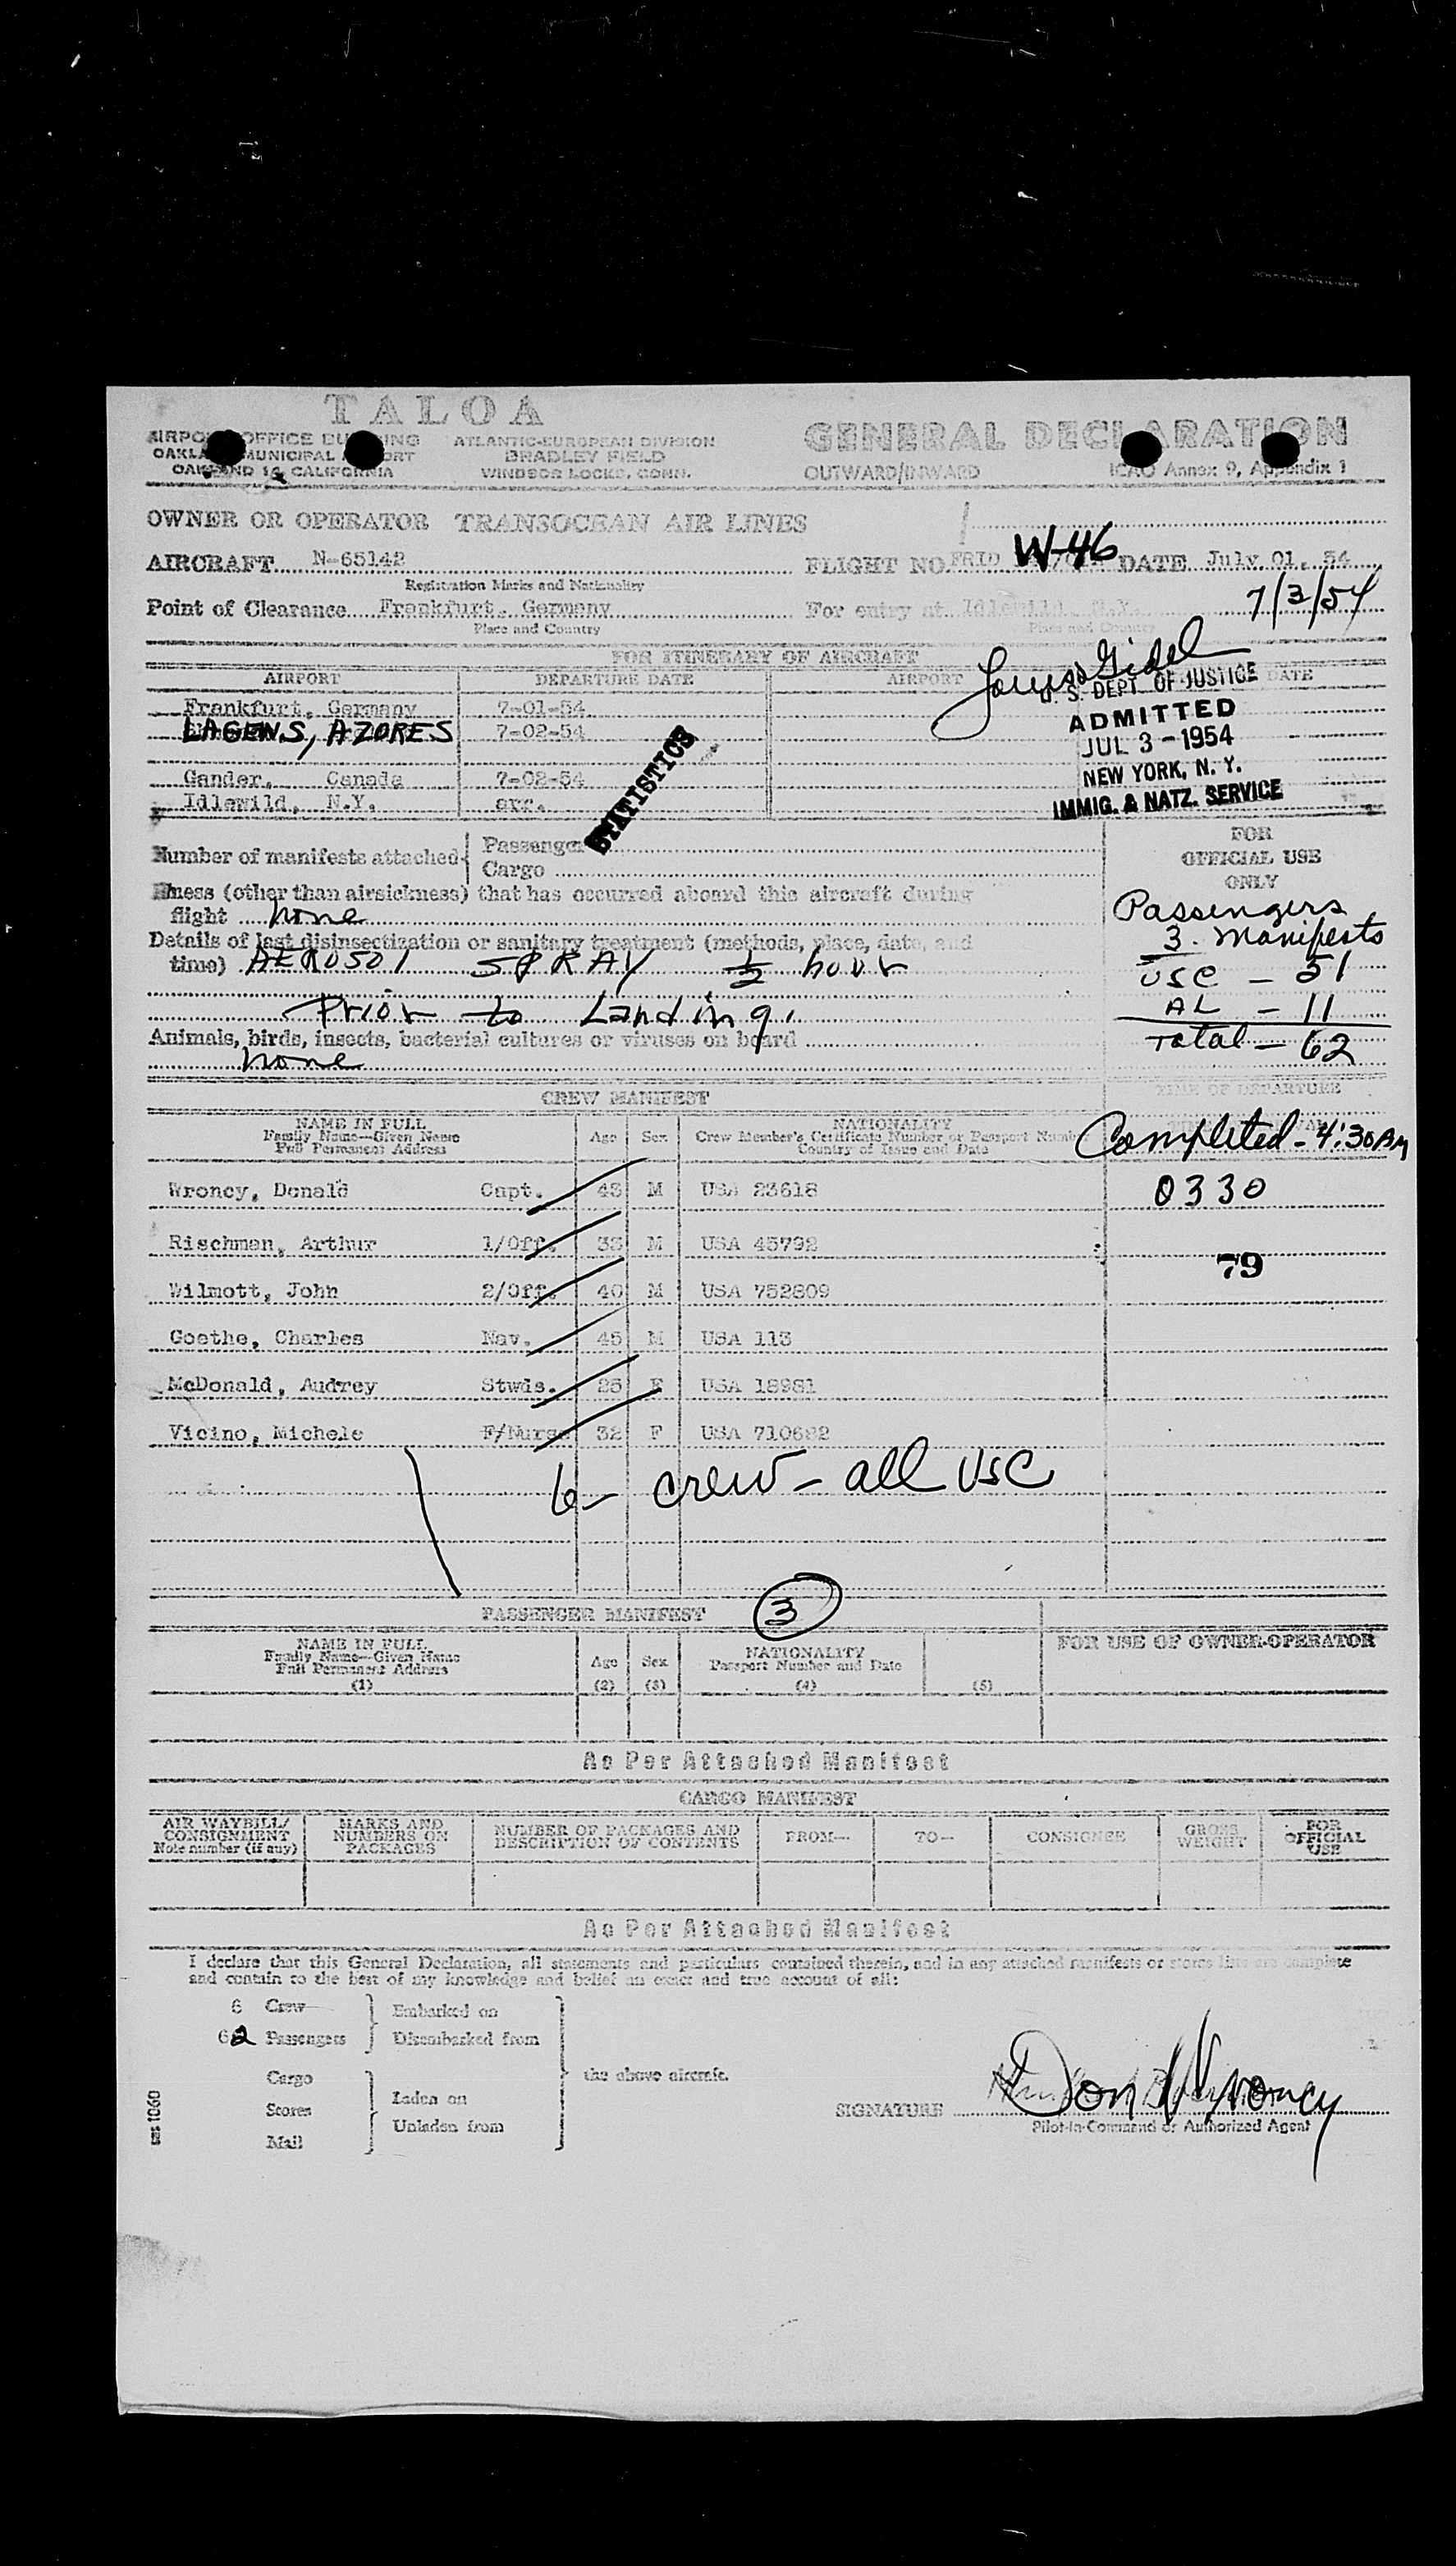 TALOA
AIRPORT OFFICE BUILDING
OAKLAND MUNICIPAL AIRPORT
OAKLAND 14, CALIFORNIA
ATLANTIC-EUROPEAN DIVISION
BRADLEY FIELD
WINDSOR LOCKS, CONN.
GENERAL DECLARATION
OUTWARD/INWARD ICAO Annex 9, Appendix 1
OWNER OR OPERATOR TRANSOCEAN AIR LINES
AIRCRAFT N-65142 FLIGHT NO. W-46 DATE July 01, 54
Registration Marks and Nationality
7/3/54
Point of Clearance Frankfurt, Germany For entry at Idlewild, N.Y.
Place and Country Place and Country
FOR ITINERARY OF AIRCRAFT
AIRPORT DEPARTURE DATE AIRPORT DATE
Frankfurt, Germany 7-01-54
LAGENS, AZORES 7-02-54
Gander, Canada 7-02-54
Idlewild, N.Y. arr.
STATISTICS
U. S. DEPT. OF JUSTICE
ADMITTED
JUL 3 - 1954
NEW YORK, N. Y.
IMMIG. & NATZ. SERVICE
Number of manifests attached Passenger
Cargo
FOR
OFFICIAL USE
ONLY
Illness (other than airsickness) that has occurred aboard this aircraft during
flight none
Details of last disinsectization or sanitary treatment (methods, place, date, and
time) AEROSOl SPRAY 1/2 hour
Prior to Landing.
Animals, birds, insects, bacterial cultures or viruses on board
none
Passengers
3. Manifests
USC - 51
AL - 11
Total - 62
CREW MANIFEST
TIME OF DEPARTURE
NAME IN FULL
Family Name—Given Name
Full Permanent Address
Age
Sex
NATIONALITY
Crew Member's Certificate Number or Passport Number
Country of Issue and Date
Completed - 4:30 AM
0330
79
Wroncy, Donald Capt. 43 M USA 23618
Rischman, Arthur 1/Off. M USA 45792
Wilmott, John 2/Off. 40 M USA 752809
Goethe, Charles Nav. 45 M USA 113
McDonald, Audrey Stwds. 25 F USA 18981
Vicino, Michele F/Nurse 32 F USA 710682
6 - crew - all USC
PASSENGER MANIFEST 3
NAME IN FULL
Family Name—Given Name
Full Permanent Address
(1)
Age
(2)
Sex
(3)
NATIONALITY
Passport Number and Date
(4)
(5)
FOR USE OF OWNER-OPERATOR
As Per Attached Manifest
CARGO MANIFEST
AIR WAYBILL/
CONSIGNMENT
Note number (if any)
MARKS AND
NUMBERS ON
PACKAGES
NUMBER OF PACKAGES AND
DESCRIPTION OF CONTENTS
FROM—
TO—
CONSIGNEE
GROSS
WEIGHT
FOR
OFFICIAL
USE
As Per Attached Manifest
I declare that this General Declaration, all statements and particulars contained therein, and in any attached manifests or stores lists are complete
and contain to the best of my knowledge and belief an exact and true account of all:
6 Crew Embarked on
62 Passengers Disembarked from
Cargo
the above aircraft.
Stores Laden on
Mail Unladen from
SIGNATURE Don Wroncy
Pilot-in-Command or Authorized Agent
sas 1060